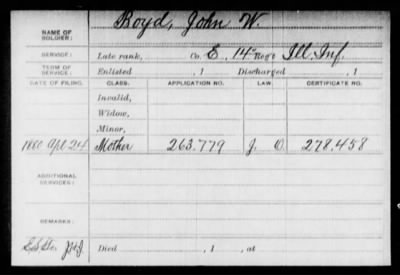 NAME OF SOLDIER: Boyd, John W.
SERVICE: Late rank, Co. E, 14" Reg't Ill. Inf.
TERM OF SERVICE: Enlisted , 1 Discharged , 1
DATE OF FILING. CLASS. APPLICATION NO. LAW. CERTIFICATE NO.
Invalid,
Widow,
Minor,
1880 Apl 24 Mother 263.779 J. O. 278.458
ADDITIONAL SERVICES:
REMARKS:
Died , 1 , at